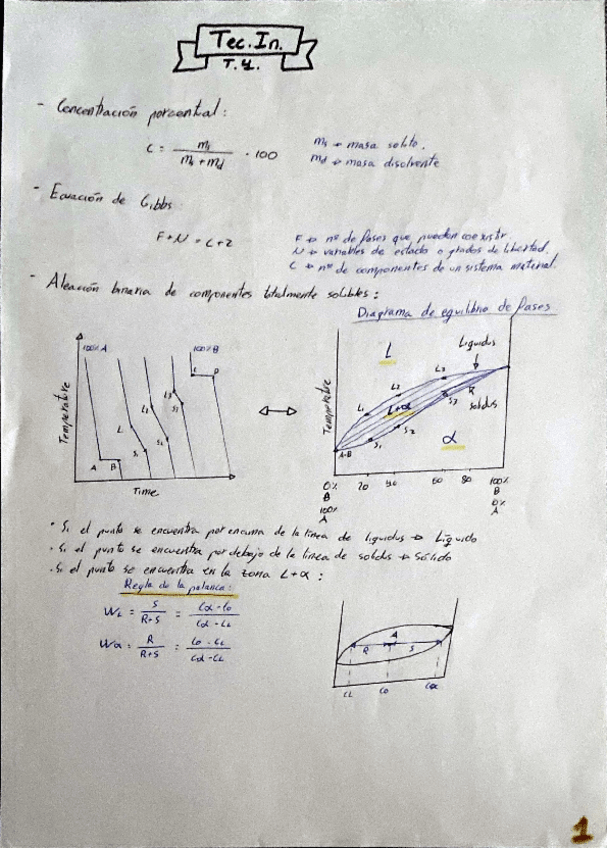 Tec.In.
T.4.
- Concentración porcentual:
C = ms / (ms + md) · 100
ms → masa soluto.
md → masa disolvente
- Ecuación de Gibbs:
F + N = C + 2
F → nº de fases que pueden coexistir
N → variables de estado o grados de libertad.
C → nº de componentes de un sistema material.
- Aleación binaria de componentes totalmente solubles:
Diagrama de equilibrio de fases
100% A
100% B
Temperature
L1
L2
L3
S1
S2
A B
Time
Temperature
L
Liquidus
L1
L2
L3
L+α
S1
S2
S3
solidus
α
A-B
0% B
100% A
20
40
60
80
100% B
0% A
· Si el punto se encuentra por encima de la línea de liquidus → Líquido
· Si el punto se encuentra por debajo de la línea de solidus → Sólido
· Si el punto se encuentra en la zona L+α:
Regla de la palanca:
WL = S / (R+S) = (Cα - C0) / (Cα - CL)
Wα = R / (R+S) = (C0 - CL) / (Cα - CL)
A
R
S
CL
C0
Cα
1